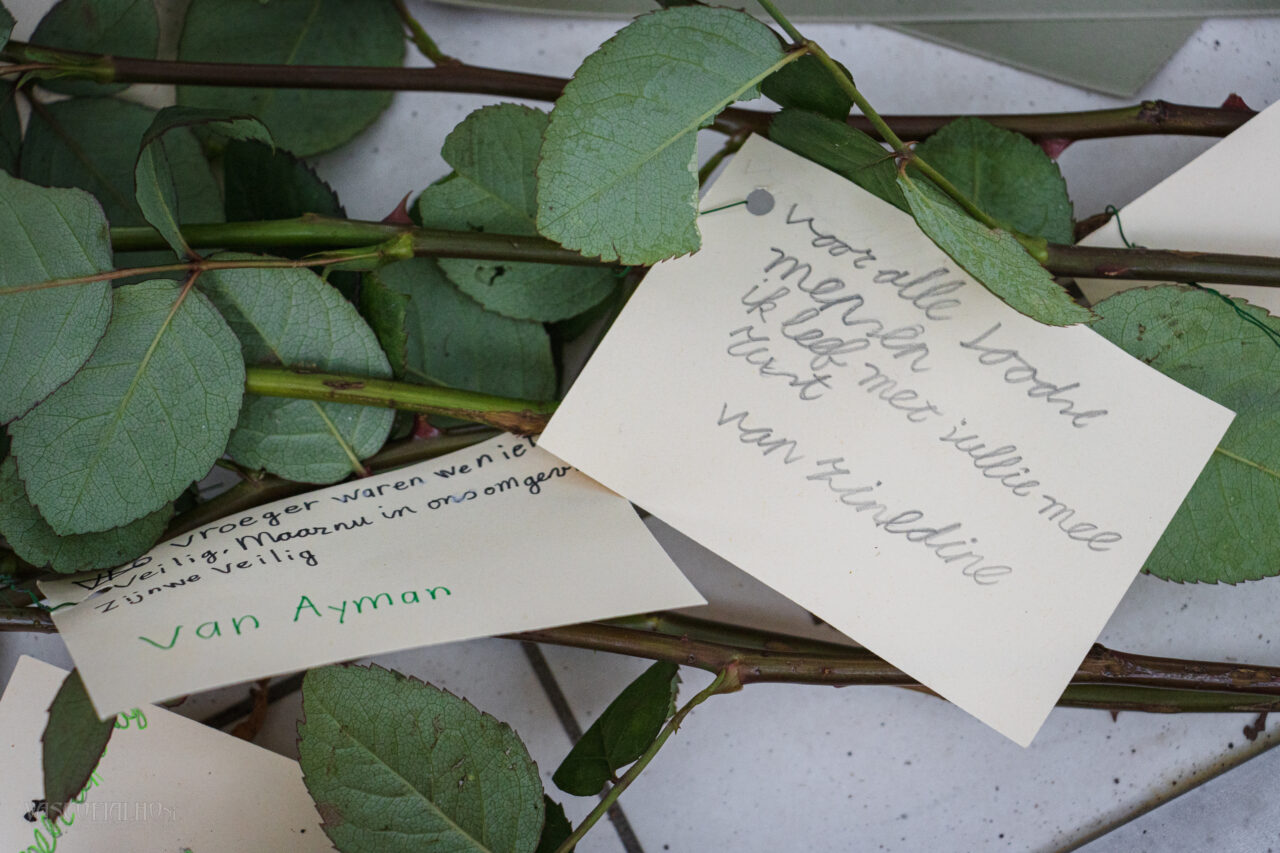 voor alle Joodse
mensen
ik leef met jullie mee
van Zinedine
vroeger waren we niet
veilig. Maar nu in ons omgev
zijn we veilig
van Ayman